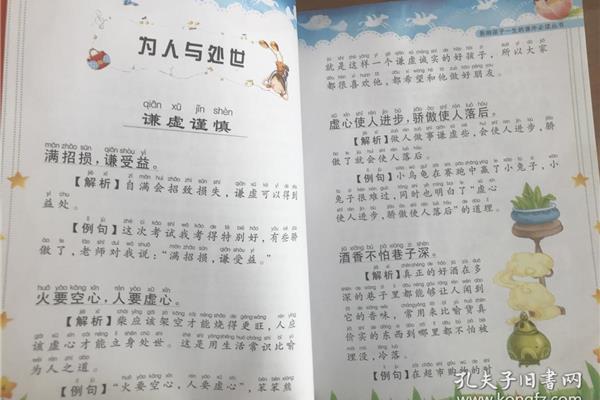 为人与处世
qiān xū jǐn shèn
谦虚谨慎
mǎn zhāo sǔn qiān shòu yì
满招损,谦受益。
【解析】自满会招致损失,谦虚可以得到
益处。
【例句】这次考试我考得特别好,有些骄
傲了,老师对我说:“满招损,谦受益。”
huǒ yào kōng xīn rén yào xū xīn
火要空心,人要虚心。
【解析】柴应该架空才能烧得更旺,人应
该虚心才能立身处世。这是用生活常识比喻
为人之道。
【例句】“火要空心,人要虚心”,笨笨熊
影响孩子一生的课外必读丛书
就是这样一个谦虚诚实的好孩子,所以大家
都很喜欢他,都希望和他做好朋友。
虚心使人进步,骄傲使人落后。
【解析】做人做事谦虚些,会使人进步,骄
傲了就会使人落后。
【例句】小乌龟在赛跑中赢了小兔子,小
兔子很难过,同时也明白了“虚心
使人进步,骄傲使人落后”的道理。
jiǔ xiāng bú pà xiàng zi shēn
酒香不怕巷子深。
【解析】真正的好酒在多
深的巷子里都能够让人闻到
它的香味,常用来比喻货真
价实的东西到哪里都不怕被
埋没、冷落。
【例句】在超市购物的时
孔夫子旧书网
www.kongfz.com